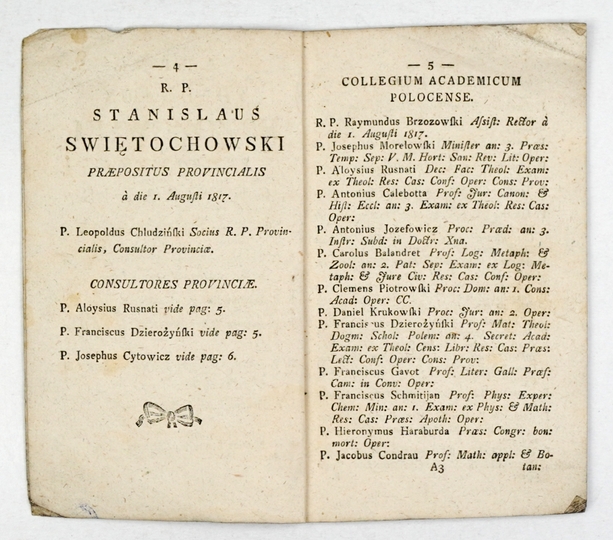 — 4 —
R. P.
STANISLAUS
SWIĘTOCHOWSKI
PRÆPOSITUS PROVINCIALIS
à die 1. Auguſti 1817.
P. Leopoldus Chludzińſki Socius R. P. Provin-
cialis, Consultor Provinciæ.
CONSULTORES PROVINCIÆ.
P. Aloysius Rusnati vide pag: 5.
P. Franciscus Dzierożyńſki vide pag: 5.
P. Josephus Cytowicz vide pag: 6.
— 5 —
COLLEGIUM ACADEMICUM
POLOCENSE.
R. P. Raymundus Brzozowſki Aſsiſt: Rector à
die 1. Auguſti 1817.
P. Josephus Morelowſki Miniſter an: 3. Præs:
Temp: Sep: V. M. Hort: San: Rev: Lit: Oper:
P. Aloysius Rusnati Dec: Fac: Theol: Exam:
ex Theol: Res: Cas: Conf: Oper: Cons: Prov:
P. Antonius Calebotta Prof: Jur: Canon: &
Hiſt: Eccl: an: 3. Exam: ex Theol: Res: Cas:
Oper:
P. Antonius Jozefowicz Proc: Præd: an: 3.
Inſtr: Subd: in Doctr: Xna.
P. Carolus Balandret Prof: Log: Metaph: &
Zool: an: 2. Pat: Sep: Exam: ex Log: Me-
taph: & Jure Civ: Res: Cas: Conf: Oper:
P. Clemens Piotrowſki Proc: Dom: an: 1. Cons:
Acad: Oper: CC.
P. Daniel Krukowſki Proc: Jur: an: 2. Oper:
P. Franciscus Dzierożyńſki Prof: Mat: Theol:
Dogm: Schol: Polem: an: 4. Secret: Acad:
Exam: ex Theol: Cens: Libr: Res: Cas: Præs:
Lect: Conf: Oper: Cons: Prov:
P. Franciscus Gavot Prof: Liter: Gall: Præf:
Cam: in Conv: Oper:
P. Franciscus Schmitijan Prof: Phys: Exper:
Chem: Min: an: 1. Exam: ex Phys: & Math:
Res: Cas: Præs: Apoth: Oper:
P. Hieronymus Haraburda Præs: Congr: bon:
mort: Oper:
P. Jacobus Condrau Prof: Math: appl: & Bo-
A3 tan: